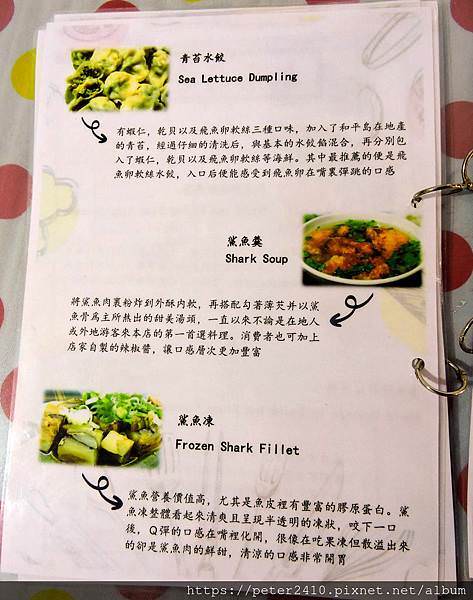 青苔水餃
Sea Lettuce Dumpling
有蝦仁，乾貝以及飛魚卵軟絲三種口味，加入了和平島在地產
的青苔，經過仔細的清洗后，與基本的水餃餡混合，再分別包
入了蝦仁，乾貝以及飛魚卵軟絲等海鮮。其中最推薦的便是飛
魚卵軟絲水餃，入口后便能感受到飛魚卵在嘴裏彈跳的口感
鯊魚羹
Shark Soup
將鯊魚肉裹粉炸到外酥內軟，再搭配勾著薄芡并以鯊
魚骨爲主所熬出的甜美湯頭，一直以來不論是在地人
或外地游客來本店的第一首選料理。消費者也可加上
店家自製的辣椒醬，讓口感層次更加豐富
鯊魚凍
Frozen Shark Fillet
鯊魚營養價值高，尤其是魚皮裡有豐富的膠原蛋白。鯊
魚凍整體看起來清爽且呈現半透明的凍狀，咬下一口
後，Q彈的口感在嘴裡化開，很像在吃果凍但散溢出來
的卻是鯊魚肉的鮮甜，清涼的口感非常開胃
https://peter2410.pixnet.net/album